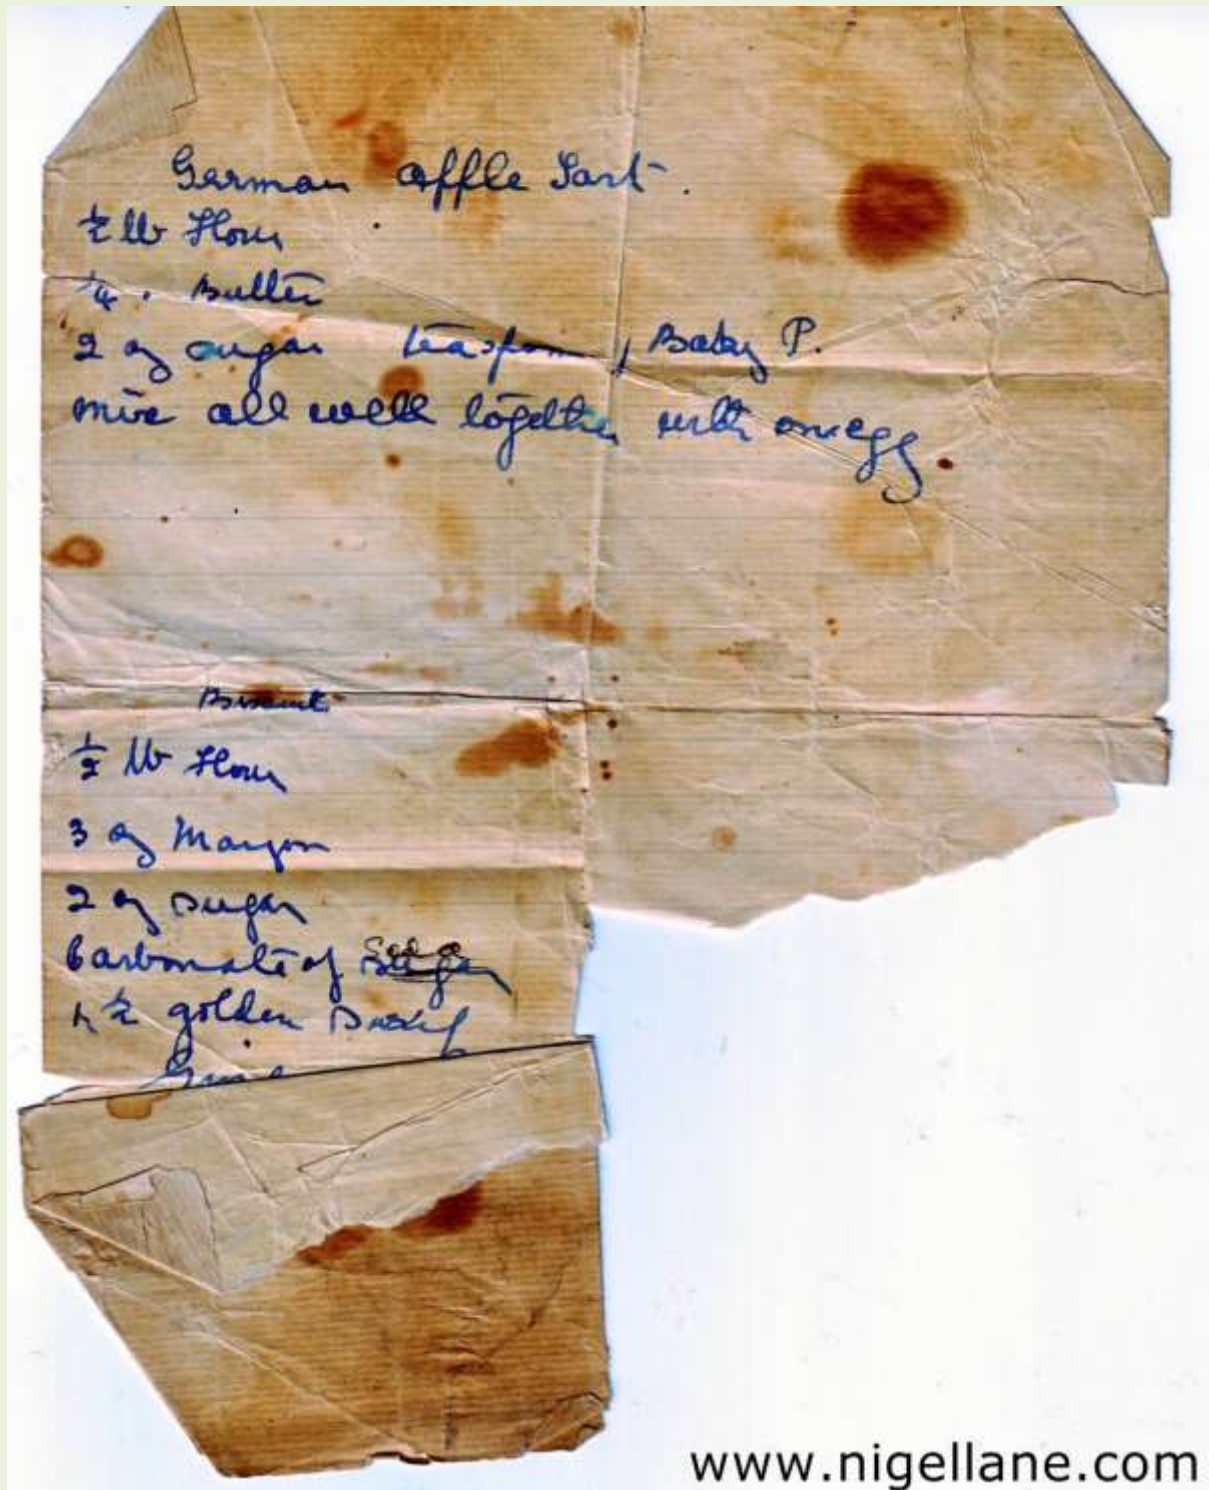 German apple Tart.
½ lb Flour
¼ " Butter
2 oz sugar teaspoon, Baking P.
mix all well together with one egg
Biscuits
½ lb Flour
3 oz Margon
2 oz sugar
Carbonate of Soda
golden
www.nigellane.com